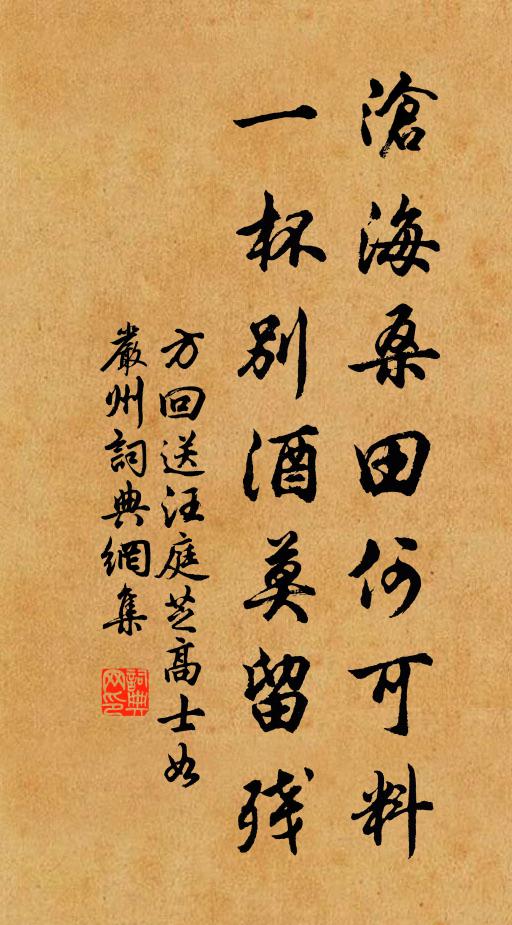 滄海桑田何可料
一杯別酒莫留殘
方回送汪庭芝高士如
嚴州詞典網集
詞典
网印